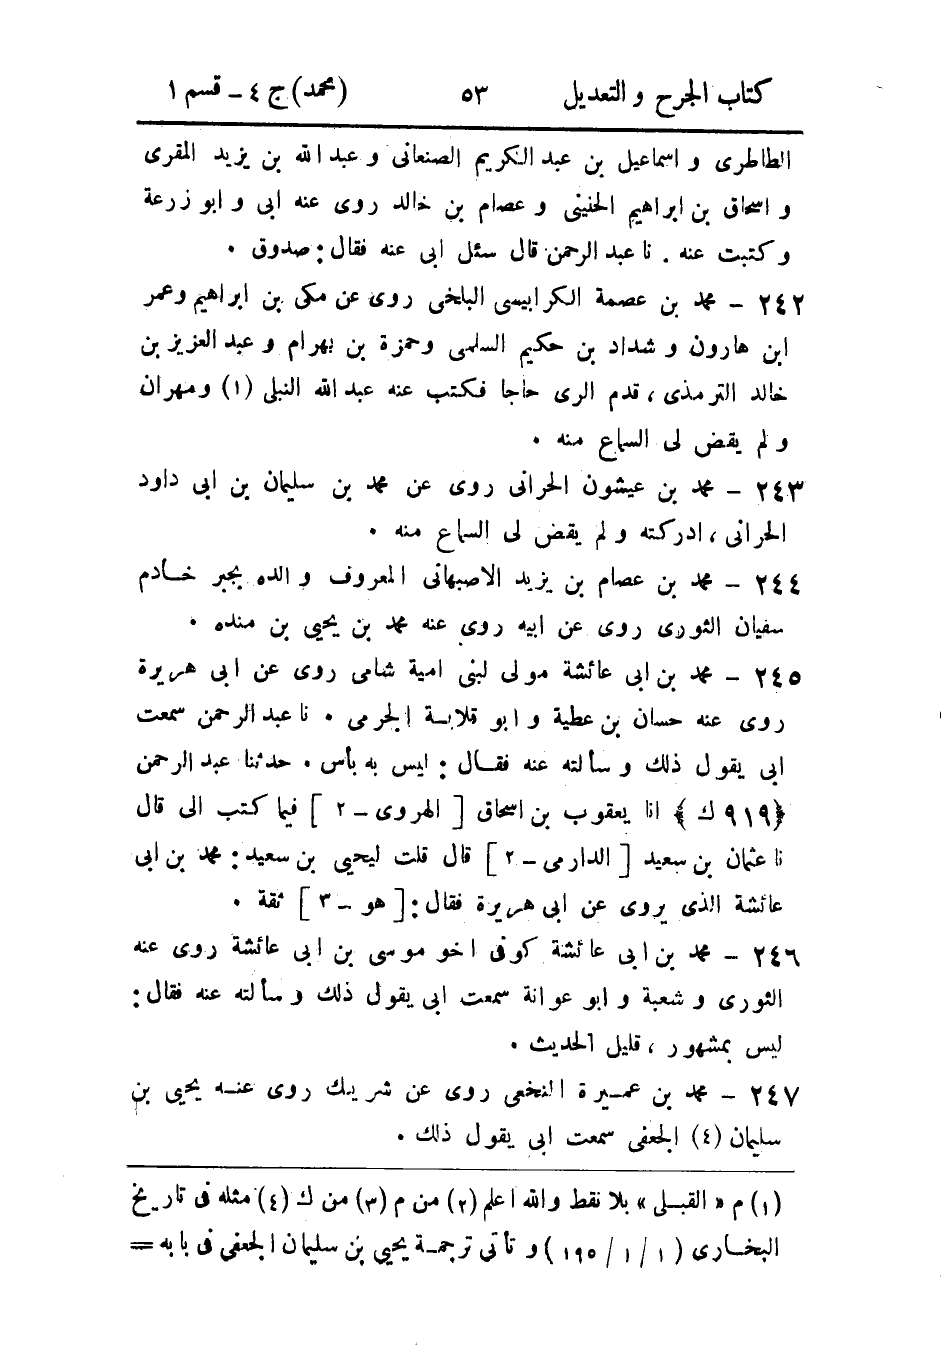 كتاب الجرح و التعديل ٥٣ (محمد) ج ٤ - قسم ١
الطاطرى و اسماعيل بن عبد الكريم الصنعانى و عبد الله بن يزيد المقرى
و اسحاق بن ابراهيم الحنينى و عصام بن خالد روى عنه ابى و ابو زرعة
و كتبت عنه . نا عبد الرحمن قال سئل ابى عنه فقال : صدوق .
٢٤٢ - محمد بن عصمة الكرابيسى البلخى روى عن مكى بن ابراهيم وعمر
ابن هارون و شداد بن حكيم السلمى وحمزة بن بهرام و عبد العزيز بن
خالد الترمذى ، قدم الرى حاجا فكتب عنه عبد الله النبلى (١) ومهران
و لم يقض لى السماع منه .
٢٤٣ - محمد بن عيشون الحرانى روى عن محمد بن سليمان بن ابى داود
الحرانى ، ادركته و لم يقض لى السماع منه .
٢٤٤ - محمد بن عصام بن يزيد الاصبهانى المعروف و الده بجبر خادم
سفيان الثورى روى عن ابيه روى عنه محمد بن يحيى بن منده .
٢٤٥ - محمد بن ابى عائشة مولى لبنى امية شامى روى عن ابى هريرة
روى عنه حسان بن عطية و ابو قلابة الجرمى . نا عبد الرحمن سمعت
ابى يقول ذلك و سألته عنه فقال : ليس به بأس . حدثنا عبد الرحمن
﴿٩١٩ ك﴾ انا يعقوب بن اسحاق [ الهروى - ٢ ] فيما كتب الى قال
نا عثمان بن سعيد [ الدارمى - ٢ ] قال قلت ليحيى بن سعيد : محمد بن ابى
عائشة الذى يروى عن ابى هريرة فقال : [ هو - ٣ ] ثقة .
٢٤٦ - محمد بن ابى عائشة كوفى اخو موسى بن ابى عائشة روى عنه
الثورى و شعبة و ابو عوانة سمعت ابى يقول ذلك و سألته عنه فقال :
ليس بمشهور ، قليل الحديث .
٢٤٧ - محمد بن عميرة النخعى روى عن شريك روى عنه يحيى بن
سليمان (٤) الجعفى سمعت ابى يقول ذلك .
(١) م « القبلى » بلا نقط والله اعلم (٢) من م (٣) من ك (٤) مثله فى تاريخ
البخارى ( ١ / ١ / ١٩٥ ) و تأتى ترجمة يحيى بن سليمان الجعفى فى بابه =